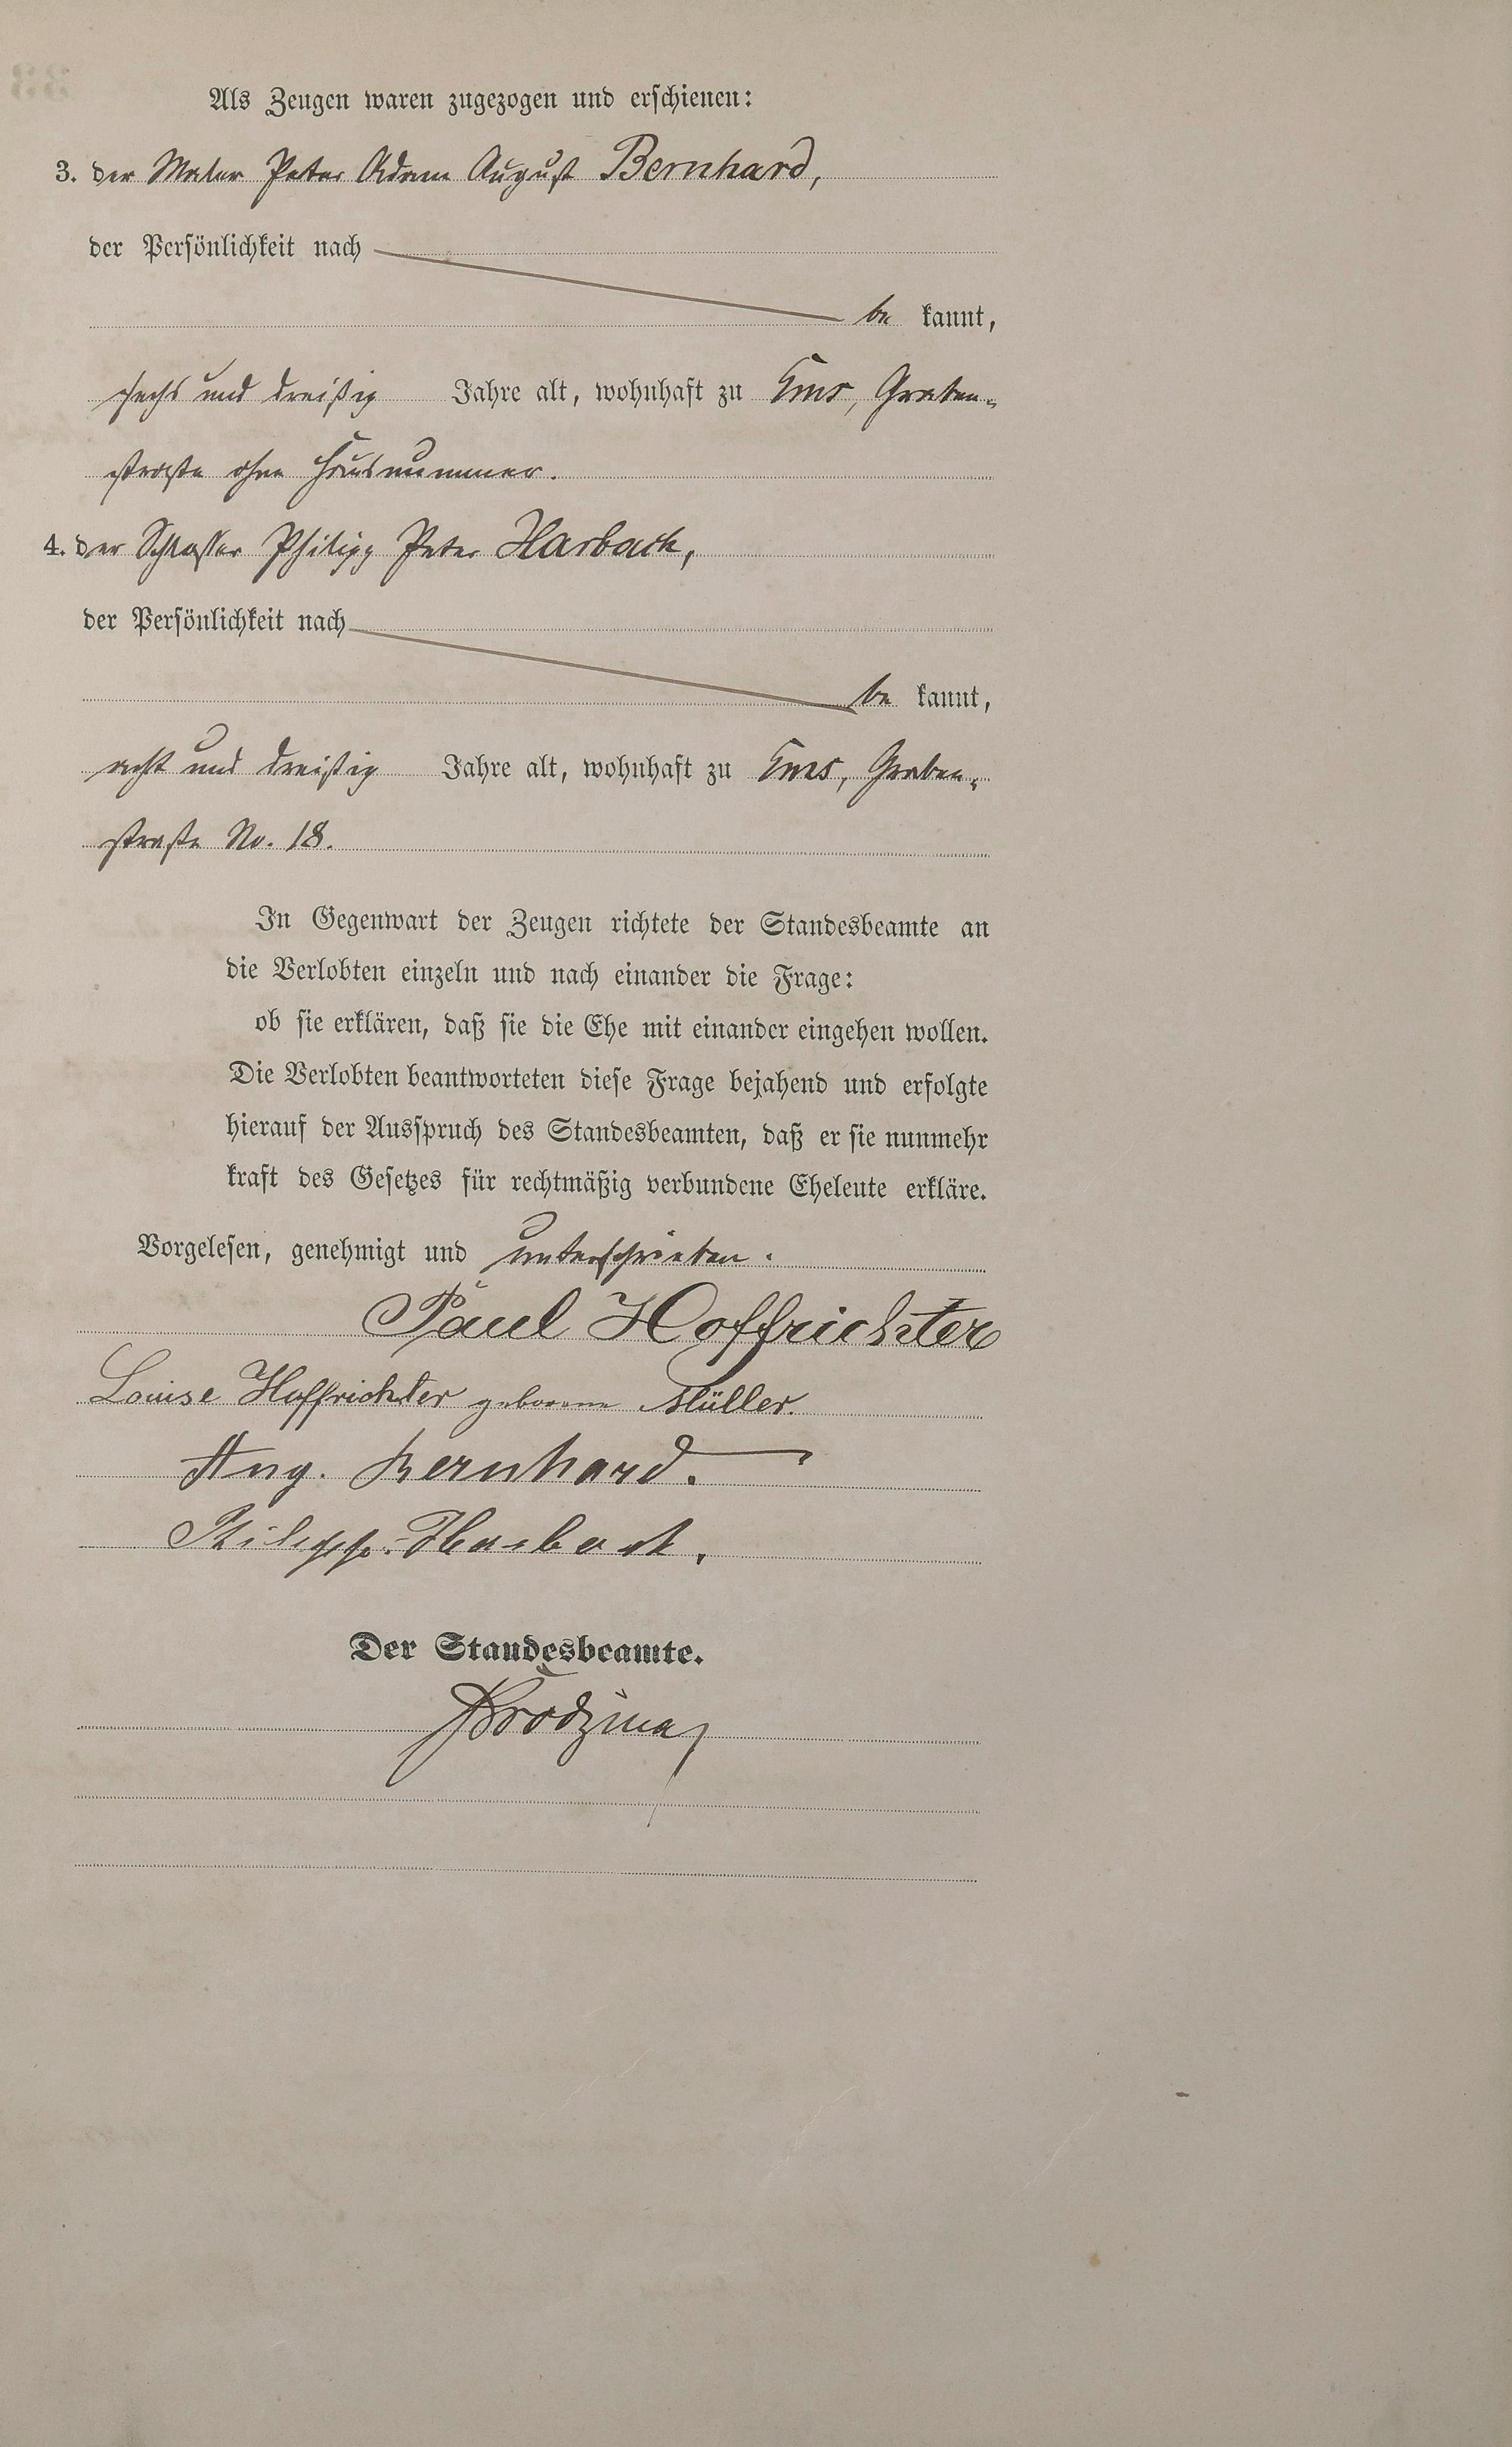 Als Zeugen waren zugezogen und erschienen:
3. der Maler Peter Adam August Bernhard,
der Persönlichkeit nach
be kannt,
sechs und dreißig Jahre alt, wohnhaft zu Ems, Graben-
straße ohne Hausnummer.
4. der Schlosser Philipp Peter Harbach,
der Persönlichkeit nach
be kannt,
acht und dreißig Jahre alt, wohnhaft zu Ems, Graben-
straße No. 18.
In Gegenwart der Zeugen richtete der Standesbeamte an
die Verlobten einzeln und nach einander die Frage:
ob sie erklären, daß sie die Ehe mit einander eingehen wollen.
Die Verlobten beantworteten diese Frage bejahend und erfolgte
hierauf der Ausspruch des Standesbeamten, daß er sie nunmehr
kraft des Gesetzes für rechtmäßig verbundene Eheleute erkläre.
Vorgelesen, genehmigt und unterschrieben.
Paul Hoffrichter
Louise Hoffrichter geborene Müller.
Aug. Bernhard.
Philipp Harbach.
Der Standesbeamte.